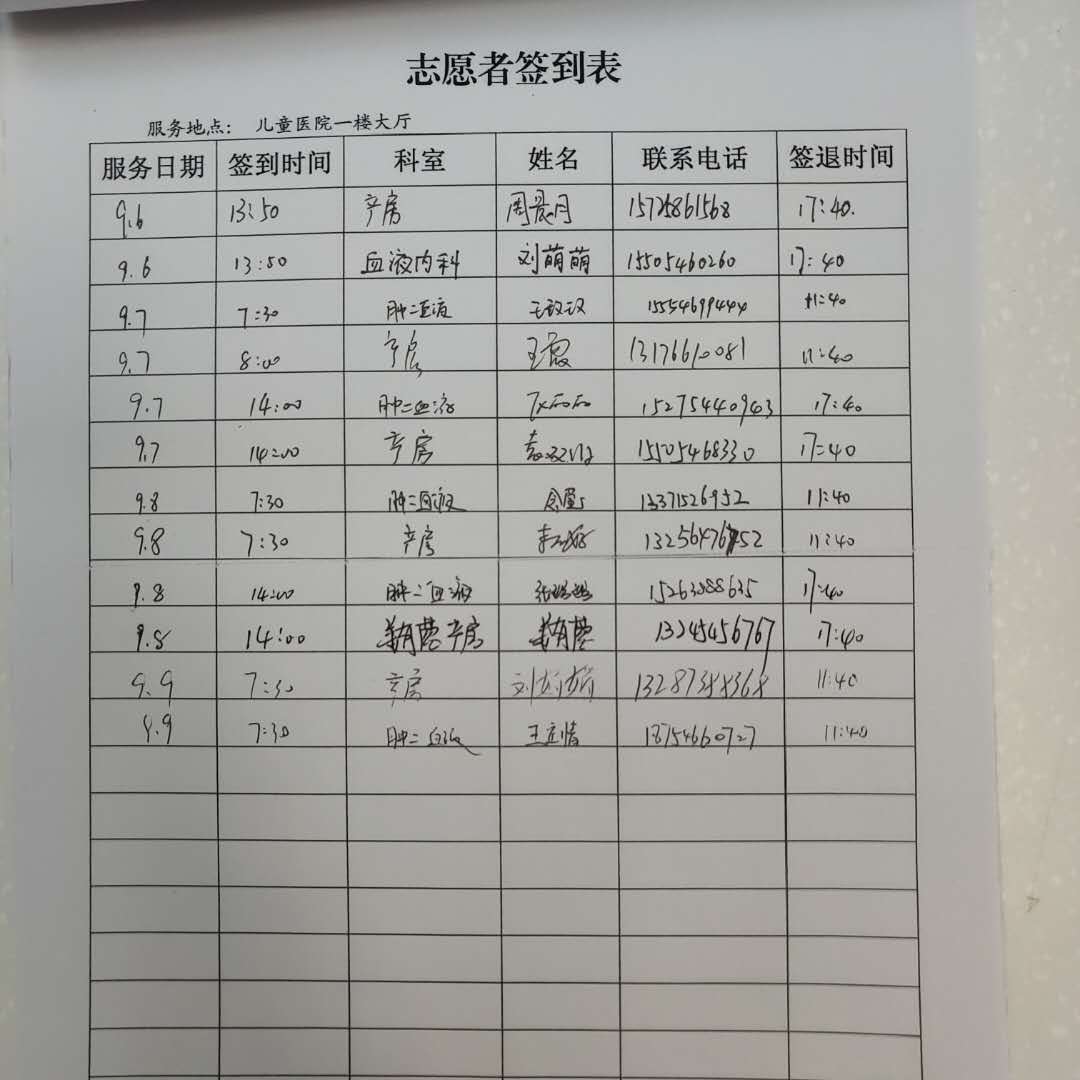 志愿者签到表
服务地点： 儿童医院一楼大厅
服务日期 签到时间 科室 姓名 联系电话 签退时间
9.6 13:50 产房 周晨月 15725861568 17:40.
9.6 13:50 血液内科 刘萌萌 15505460260 17:40
9.7 7:30 肿二血液 15554699444 11:40
9.7 8:00 产房 王霞 13176610081 11:40
9.7 14:00 肿二血液 15275440943 17:40
9.7 14:00 产房 15505468330 17:40
9.8 7:30 肿二血液 13371526952 11:40
9.8 7:30 产房 11:40
9.8 14:00 肿二血液 17:40
9.8 14:00 产房 13245456767 17:40
9.9 7:30 产房 11:40
9.9 7:30 肿二血液 18754660727 11:40